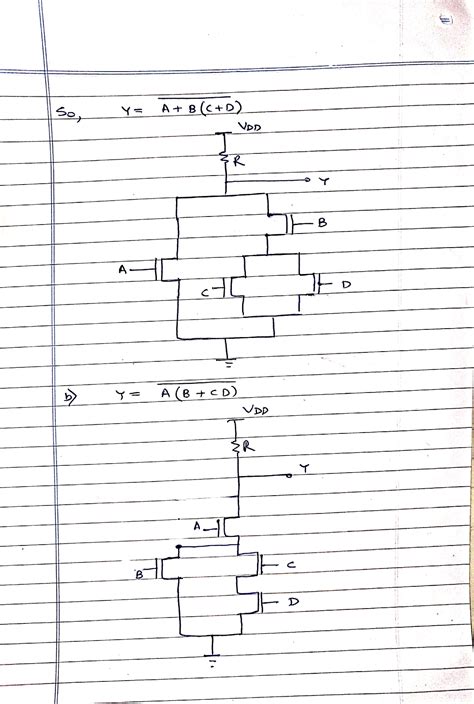 So, Y = A + B (C+D)
VDD
R
Y
B
A
C
D
b) Y = A (B + CD)
VDD
R
Y
A
B
C
D